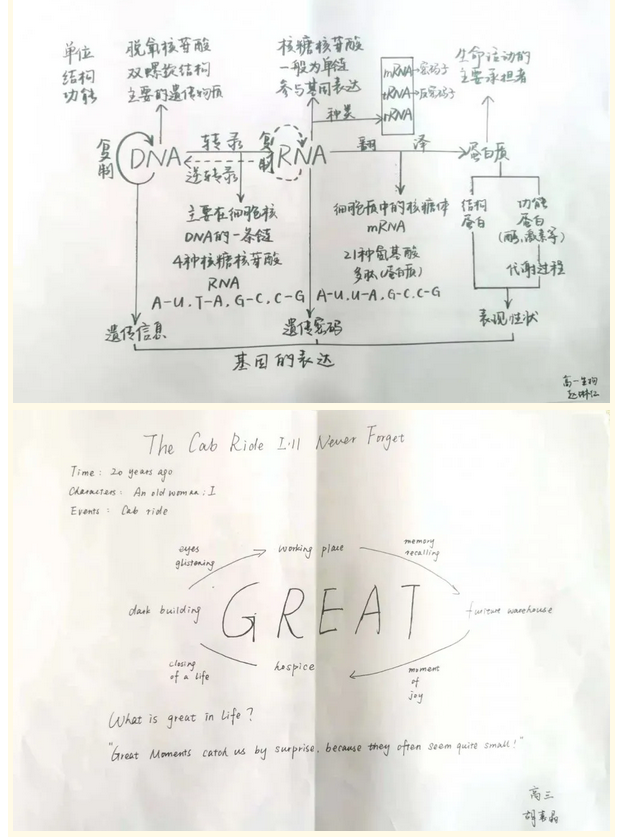 单位 脱氧核苷酸 核糖核苷酸 生命活动的
结构 双螺旋结构 一般为单链 主要承担者
功能 主要的遗传物质 参与基因表达
mRNA→密码子
tRNA→反密码子
rRNA
种类
复制 DNA 转录 逆转录 复制 RNA 翻译 蛋白质
主要在细胞核
DNA的一条链
4种核糖核苷酸
RNA
A-U.T-A.G-C.C-G
细胞质中的核糖体
mRNA
21种氨基酸
多肽(蛋白质)
A-U.U-A.G-C.C-G
结构蛋白
功能
蛋白
(酶,激素等)
代谢过程
遗传信息 遗传密码 表现性状
基因的表达
高一生物
The Cab Ride I'll Never Forget
Time: 20 years ago
Characters: An old woman; I
Events: Cab ride
eyes glistening
working place
memory recalling
dark building
GREAT
furiture warehouse
closing of a life
hospice
moment of joy
What is great in life?
"Great Moments catch us by surprise, because they often seem quite small!"
高三